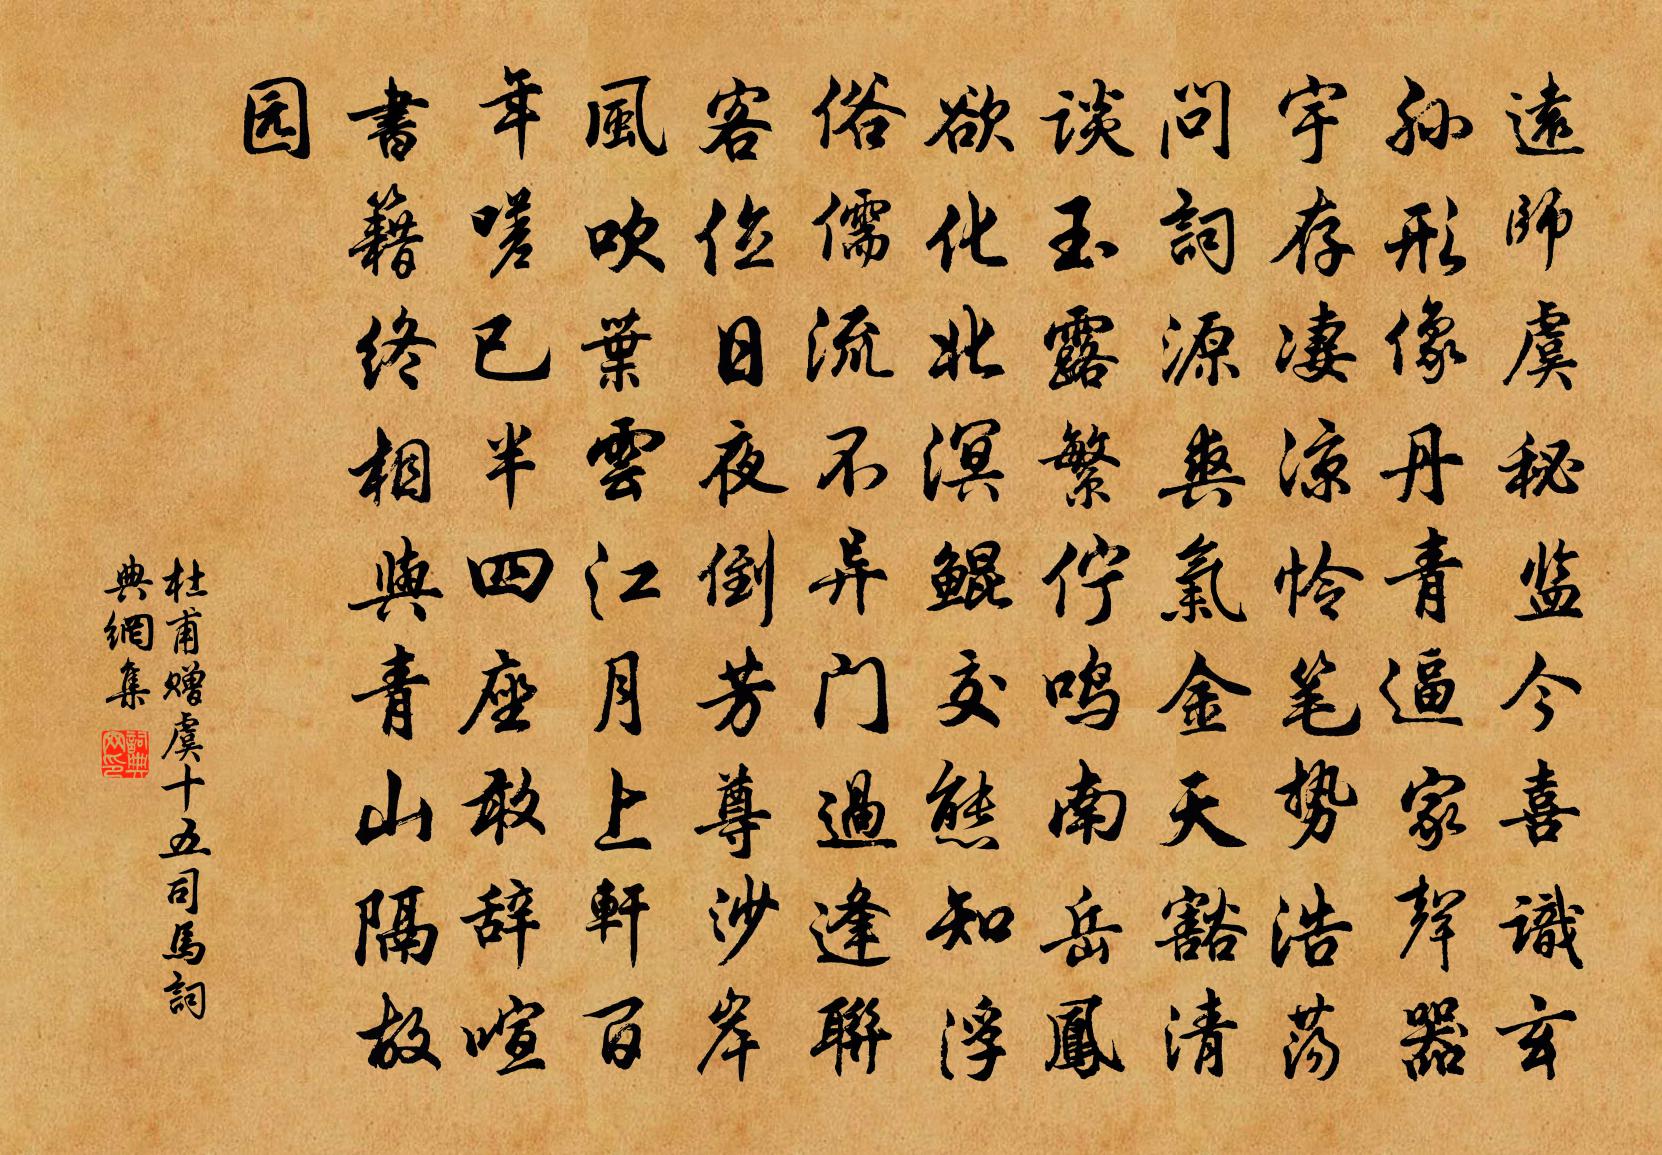 遠師虞秘监今喜識玄
孙形像丹青逼家聲器
宇存凄凉怜笔势浩荡
问詞源爽氣金天豁清
谈玉露繁佇鸣南岳鳳
欲化北溟鯤交態知浮
俗儒流不异门過逢聯
客位日夜倒芳尊沙岸
風吹葉雲江月上軒百
年嗟已半四座敢辞喧
書籍终相與青山隔故
园
杜甫贈虞十五司馬詞
典網集
詞典
网印